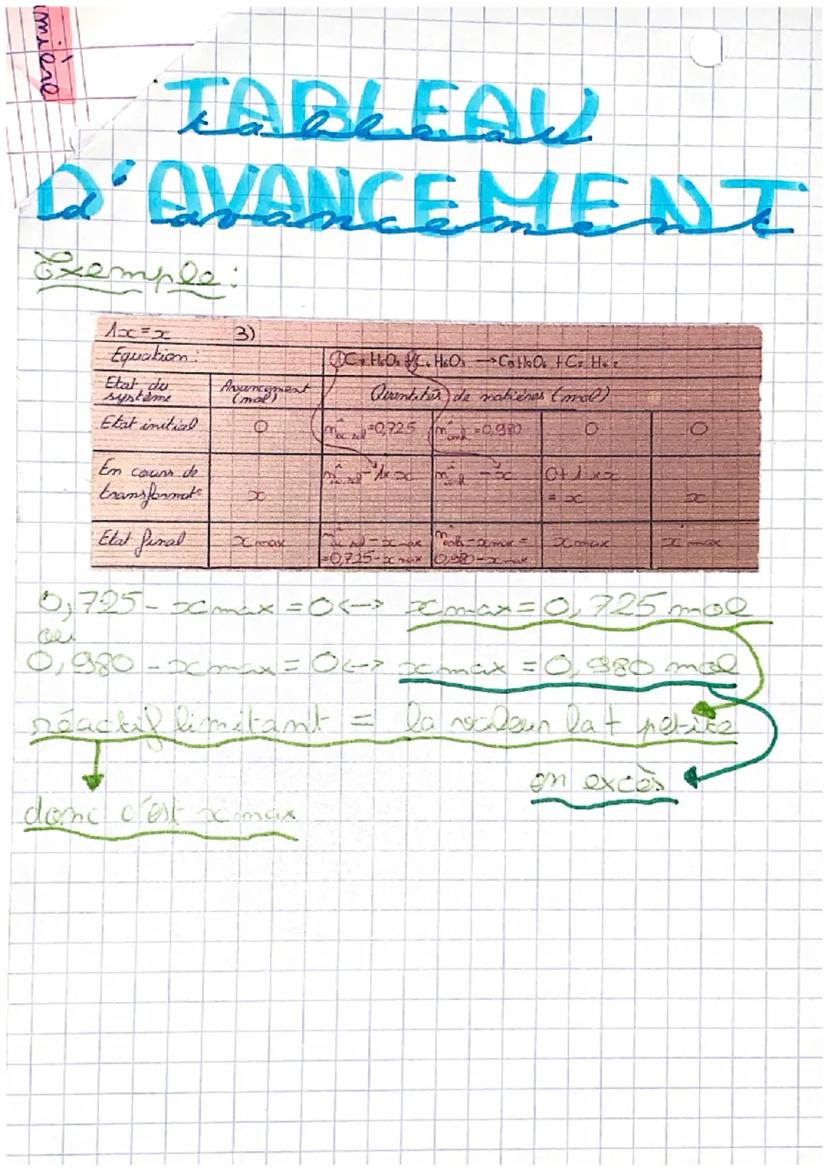 mière
TABLEAU
tableau
D'AVANCEMENT
d'avancement
Exemple:
1x=x 3)
Equation: 1C₇H₆O₃ + 1C₄H₆O₃ → C₉H₈O₄ + C₂H₄
Etat du système Avancement (mol) Quantités de matières (mol)
Etat initial 0 =0,725 =0,980 0 0
En cours de transformat° x - 1×x - x 0+1×x = x x
Etat final x max - x max =0,725-x max - x max = 0,980-x max x max x max
0,725-xmax=0<-> xmax=0,725mol
ou
0,980-xmax=0<-> xmax=0,980 mol
réactif limitant = la valeur la + petite
en excès
donc c'est x max